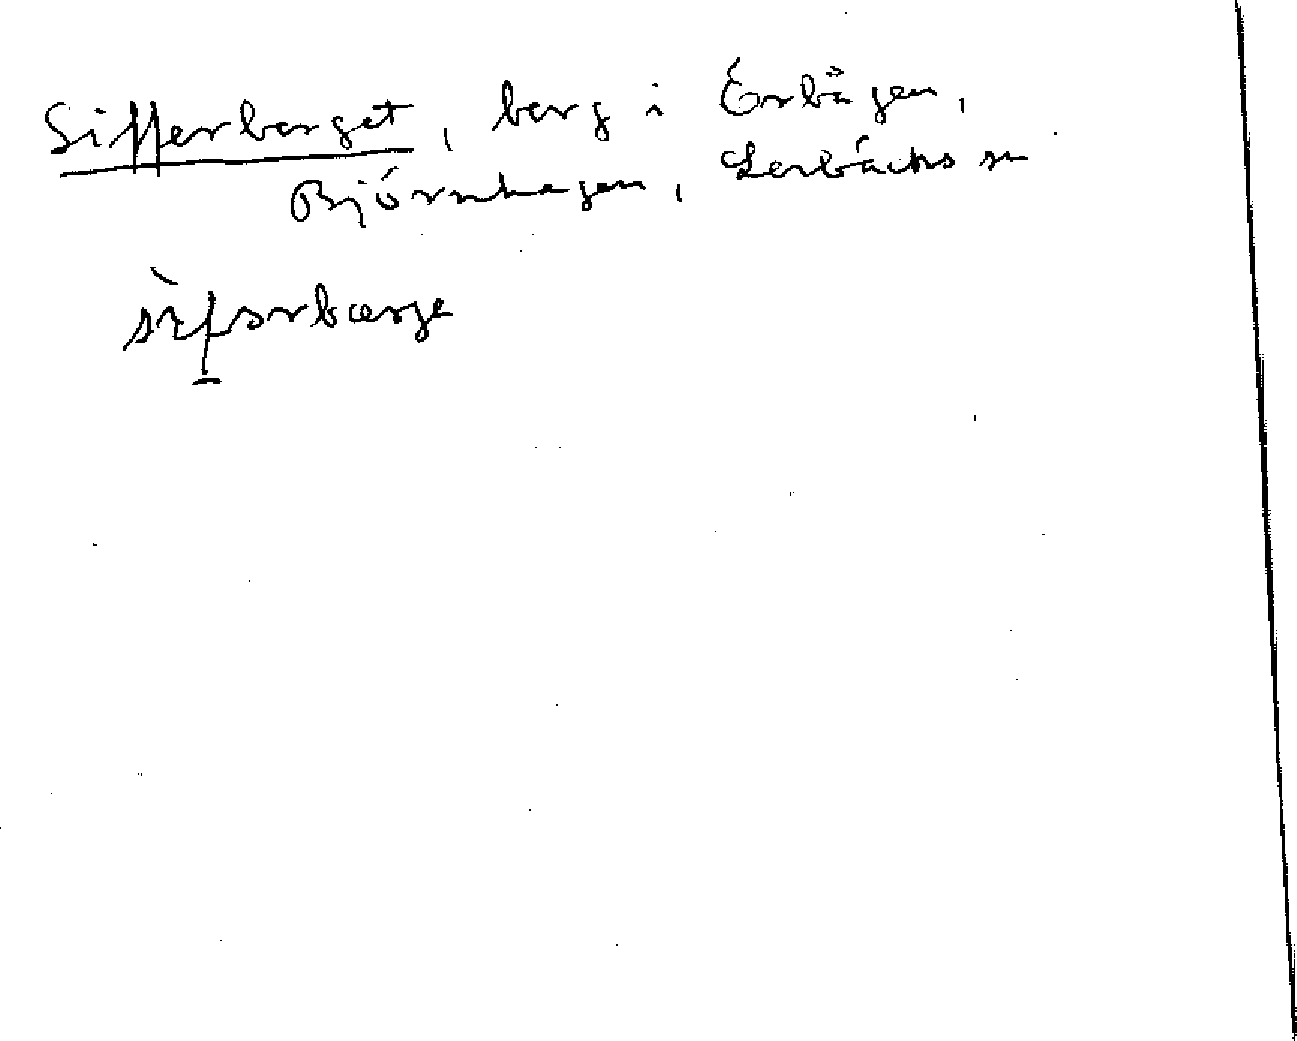 Sifferberget, berg i Örbågen,
Björnhagen, Lerbäcks sn
sìfərbærje